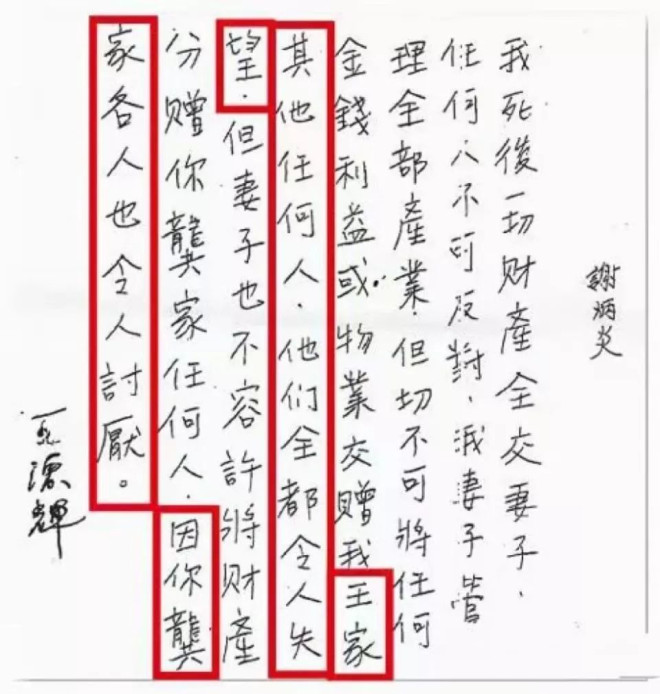 謝炳炎
我死後一切财產全交妻子，
任何人不可反對，我妻子管
理全部產業，但切不可將任何
金錢利益或物業交贈我王家
其他任何人，他们全都令人失
望，但妻子也不容許將财產
分贈你龔家任何人，因你龔
家各人也令人討厭。
王德輝